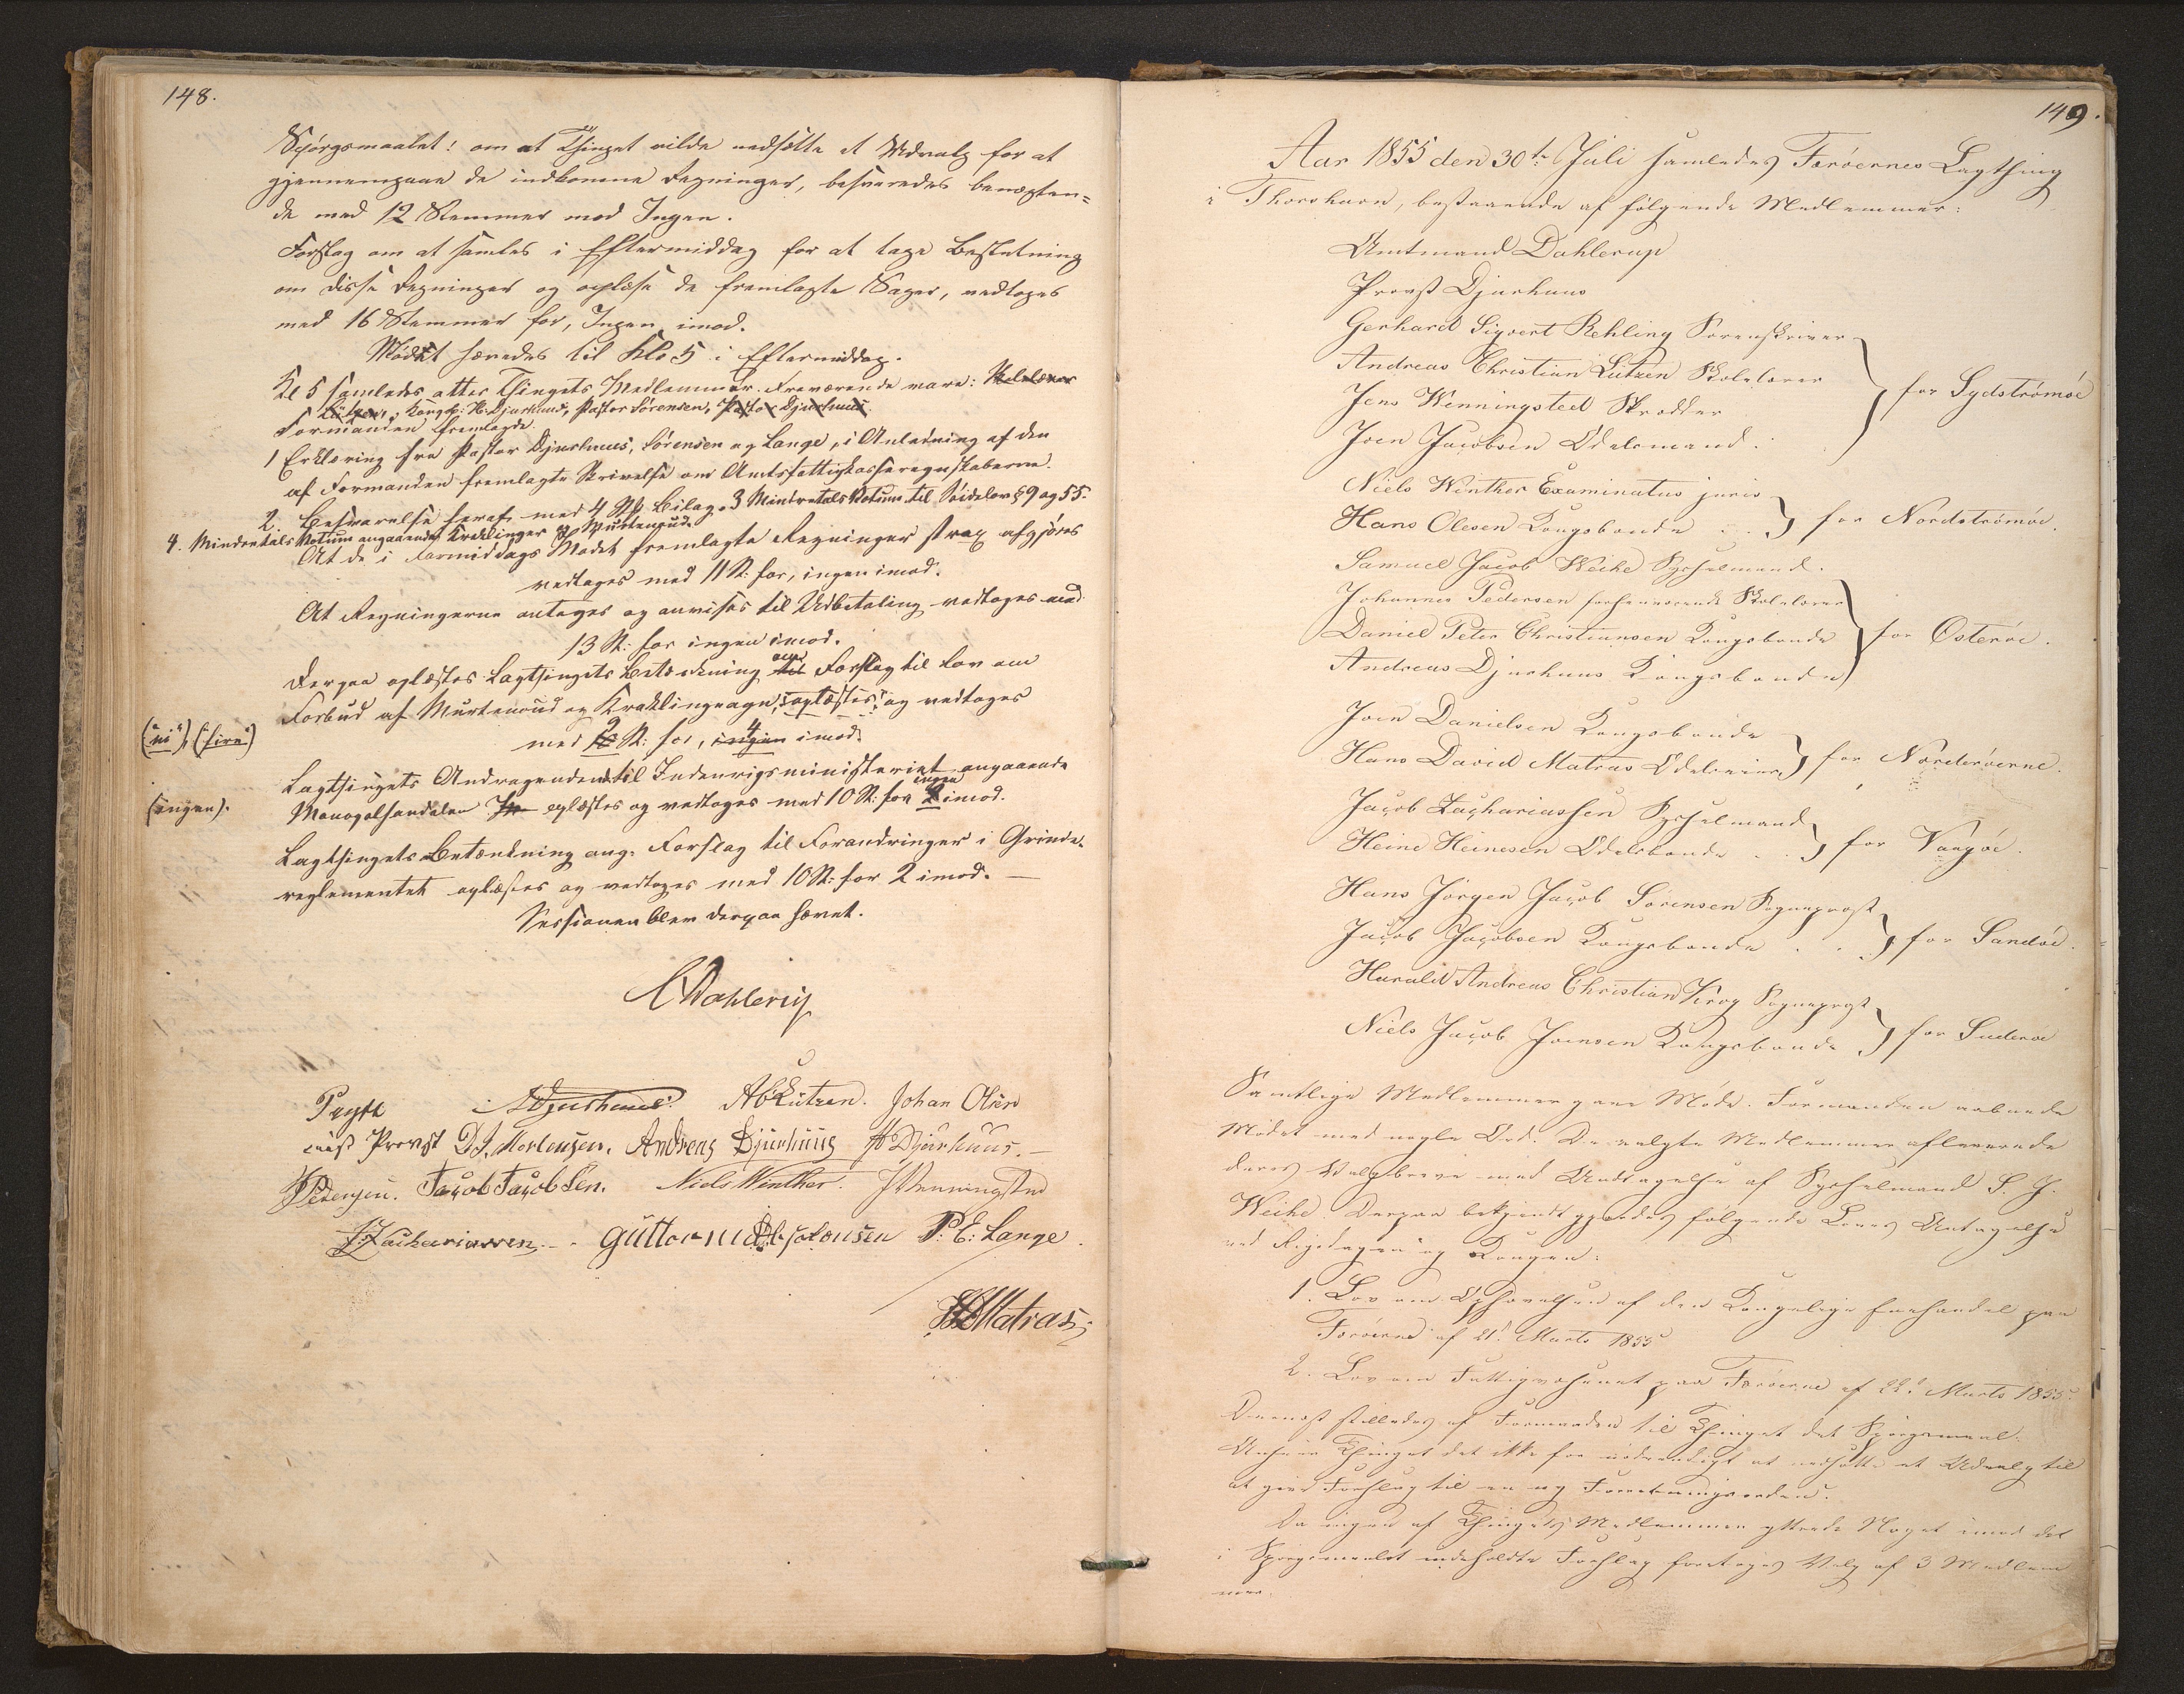 148.
Spörgsmaalet: om at Thinget vilde nedsætte et Udvalg for at
gjennemgaae de indkomne Regninger, besvaredes benægten=
de med 12 Stemmer mod Ingen.
Forslag om at samles i Eftermiddag for at tage Beslutning
om disse Regninger og oplæse de fremlagte Sager, vedtoges
med 16 Stemmer for, Ingen imod.
Mödet hævedes til Kl. 5 i Eftermiddag.
Kl 5 samledes atter Thingets Medlemmer. Fraværende vare: Skolelærer
Lützen, Kongsb: H. Djurhuus, Pastor Sörensen, Pastor Djurhuus.
Formanden fremlagde.
1 Erklæring fra Pastor Djurhuus, Sörensen og Lange, i Anledning af den
af Formanden fremlagte Skrivelse om Amtsfattigkasseregnskaberne.
2. Besvarelse heraf, med 4 Bilag. 3 Mindretals Votum til Söidelov § 9 og 55.
4. Mindretals Votum angaaende Kræklinger og Murtenoud.
At de i Formiddags Mödet fremlagte Regninger strax afgjöres
vedtages med 11 St: for, ingen imod.
At Regningerne antages og anvises til Udbetaling vedtoges med
13 St: for ingen imod.
Derpaa oplæstes Lagthingets Betænkning til om Forslag til Lov om
Forbud af Murtenoud og Kræklingeagn, oplæstes og vedtoges
("ni"), ("fire")
med 9 St: for, ingen 4 imod.
Lagthingets Andragende til Indenrigsministeriet angaaende
(ingen).
Monopolhandelen oplæstes og vedtoges med 10 St: for ingen 2 imod.
Lagthingets Betænkning ang. Forslag til Forandringer i Grinde-
reglementet oplæstes og vedtoges med 10 St: for 2 imod. —
Sessionen blev derpaa hævet.
CDahlerup
Pryth A Djurhuus. ACLützen. Johan Olsen
const Provst D. J. Mortensen. Andreas Djurhuus H Djurhuus. —
JPedersen. Jacob Jacobsen. Niels Winther. JWenningsted
JZachariassen. guttormur P. E. Lange.
HDMatras
149.
Aar 1855 den 30te Juli samledes Færöernes Lagthing
i Thorshavn, bestaaende af fölgende Medlemmer:
Amtmand Dahlerup
Provst Djurhuus
Gerhard Sigvert Rehling Sorenskriver
Andreas Christian Lützen Skolelærer
Jens Wenningsted Skrædder
for Sydströmöe
Joen Jacobsen Odelsmand.
Niels Winther Examinatus juris
Hans Olesen Kongsbonde . .
for Nordströmöe.
Samuel Jacob Weihe Sysselmand.
Johannes Pedersen forhenværende Skolelærer
Daniel Peter Christiansen Kongsbonde
for Österöe.
Andreas Djurhuus Kongsbonde
Joen Danielsen Kongsbonde
Hans David Matras Odelseier
for Norderöerne.
Jacob Zachariassen Sysselmand
Heine Heinesen Odelsbonde . .
for Vaagöe.
Hans Jörgen Jacob Sörensen Sognepræst
Jacob Jacobsen Kongsbonde . .
for Sandöe.
Harald Andreas Christian Krog Sognepræst
Niels Jacob Joensen Kongsbonde
for Suderöe
Samtlige Medlemmer gave Möde. Formanden aabnede
Mödet med nogle Ord. De valgte Medlemmer afleverede
deres Valgbreve med Undtagelse af Sysselmand S. J.
Weihe. Derpaa bekjendtgjordes fölgende Loves Antagelse
ved Rigsdagen og Kongen:
1. Lov om Ophævelsen af den Kongelige Enehandel paa
Færöerne af 21de Marts 1855
2. Lov om Fattigvæsenet paa Færöerne af 22de Marts 1855.
Dernæst stilledes af Formanden til Thinget det Spörgsmaal:
Anseer Thinget det ikke for nödvendigt at nedsætte et Udvalg til
at give Forslag til en ny Forretningsorden?
Da ingen af Thingets Medlemmer yttrede Noget imod det
i Spörgsmaalet indeholdte Forslag foretoges Valg af 3 Medlem
mer.